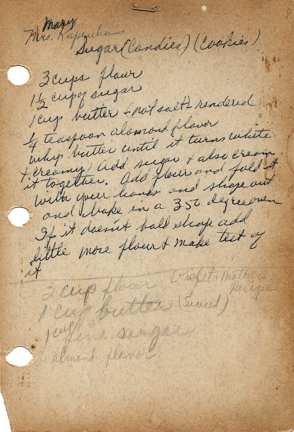 Mary
Mrs. Kapenhans
Sugar (Candies) (Cookies)
3 cups flour
1½ cups sugar
1 cup butter - not salt - rendered
¼ teaspoon alomond flavor
whip butter until it turns white
+ creamy add sugar + also cream
it together. Add flour and fold it
with your hands and shape out
and bake in a 350 degree oven
If it doesn't hold shape add
little more flour + make test of
it
3 cup flour Violet Mathews
1 cup butter (Sweet) recipe
1 cup fine sugar
almond flavor